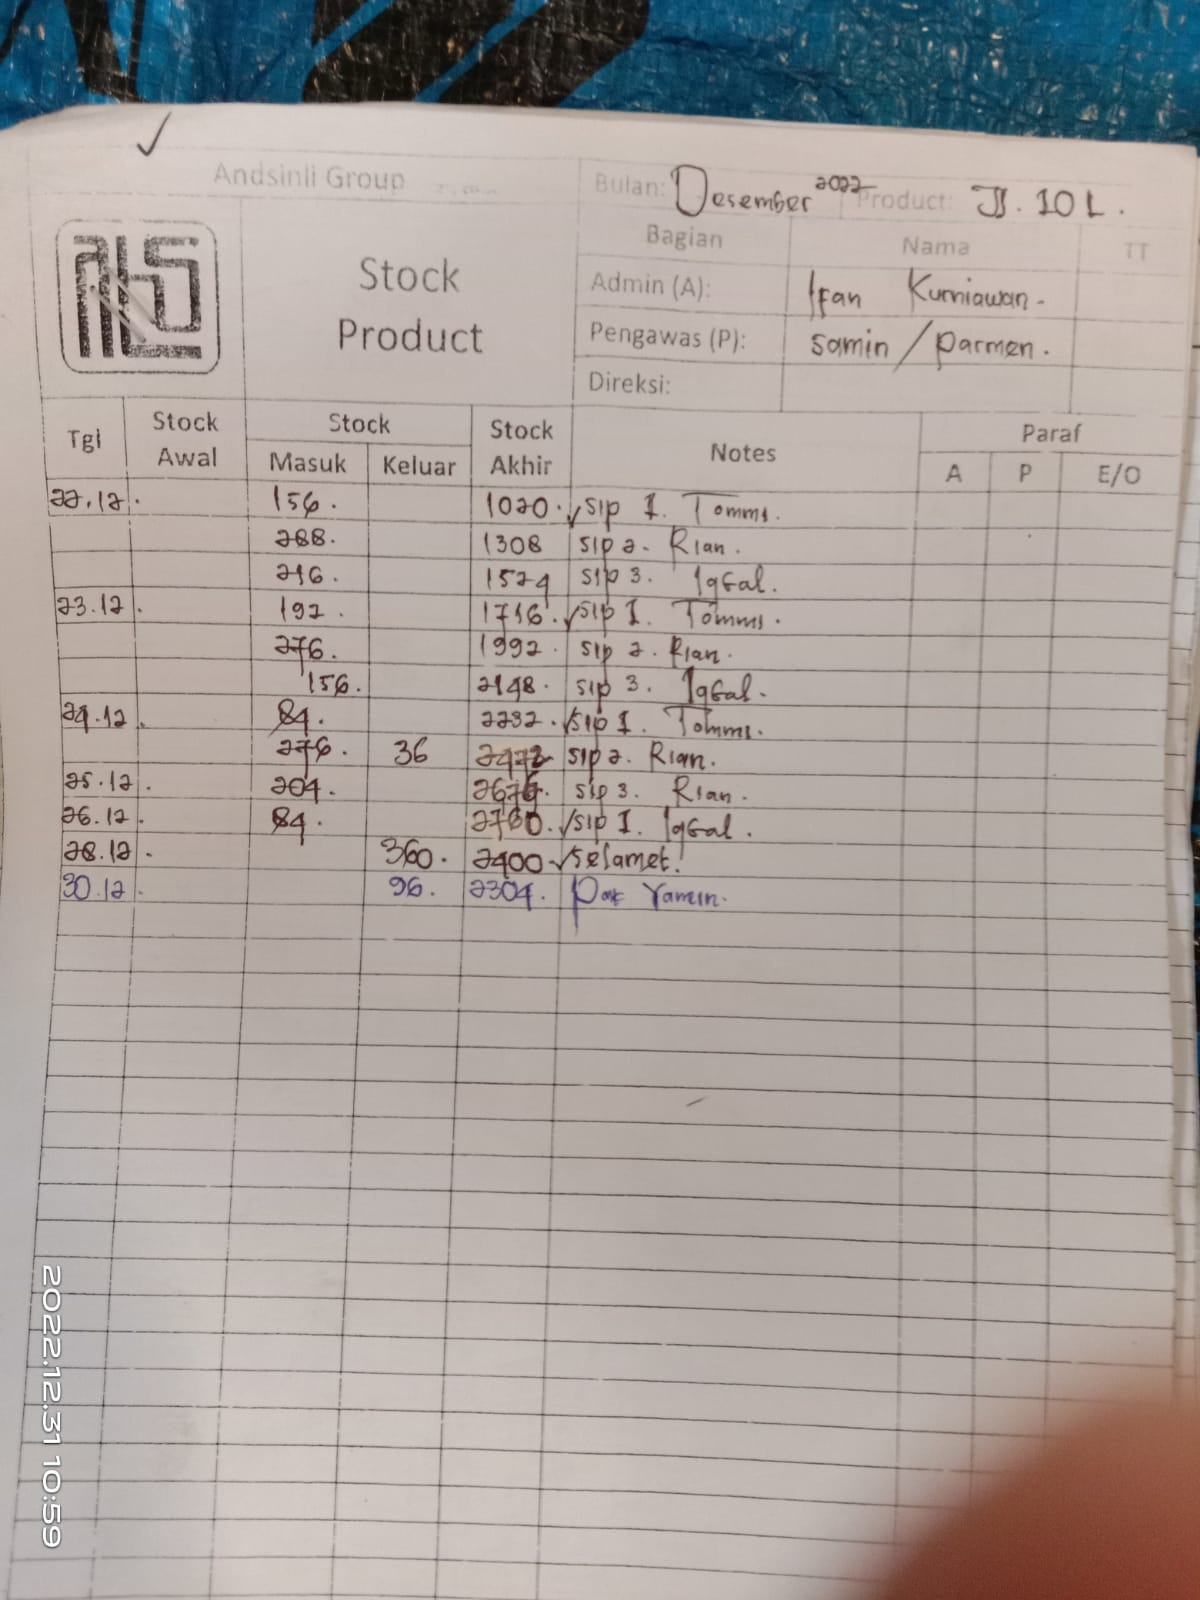 Andsinli Group
Bulan: Desember 2022 Product: JJ. 10 L.
Stock Product
Bagian Nama TT
Admin (A): Ifan Kurniawan.
Pengawas (P): Samin / Parmen.
Direksi:
Tgl Stock Awal Stock Masuk Keluar Stock Akhir Notes Paraf A P E/O
22.12. 156. 1020. ✓ sip 1. Tommi.
288. 1308 sip 2. Rian.
216. 1524 sip 3. Iqbal.
23.12. 192. 1716. ✓ sip 1. Tommi.
276. 1992. sip 2. Rian.
156. 2148. sip 3. Iqbal.
24.12. 84. 2232. ✓ sip 1. Tommi.
276. 36 2472 sip 2. Rian.
25.12. 204. 2676. sip 3. Rian.
26.12. 84. 2760. ✓ sip 1. Iqbal.
28.12. 360. 2400 ✓ Selamet.
30.12. 96. 2304. Pak Yamin.
2022.12.31 10:59